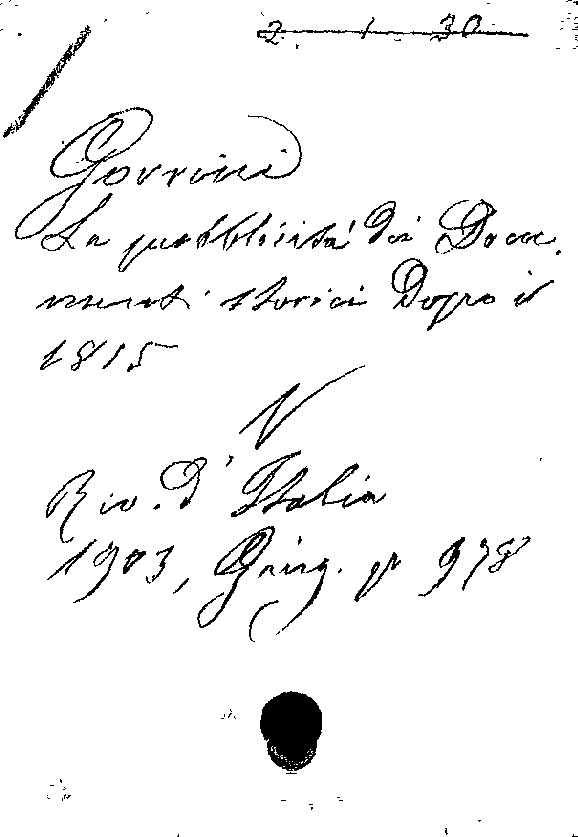 2 1 30
Gorrini
La pubblicità dei Docu
menti storici Dopo il
1815
V
Riv. D'Italia
1903, Giug. p 978